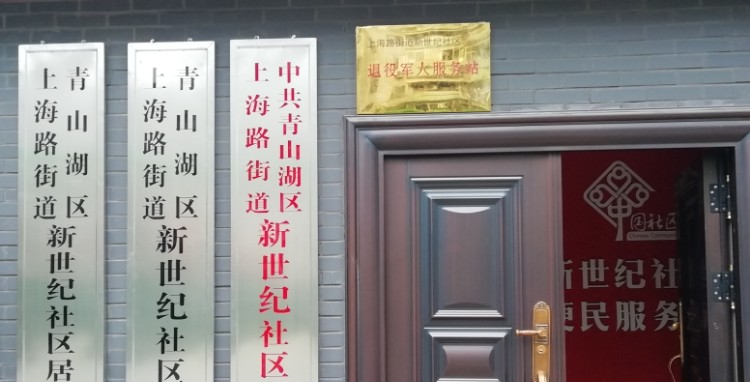 青山湖区
上海路街道
新世纪社区居
青山湖区
上海路街道
新世纪社区
中共青山湖区
上海路街道
新世纪社区
上海路街道新世纪社区
退役军人服务站
中国社区
新世纪社
便民服务